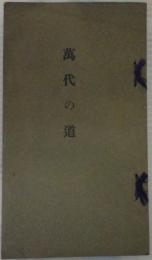 萬代の道